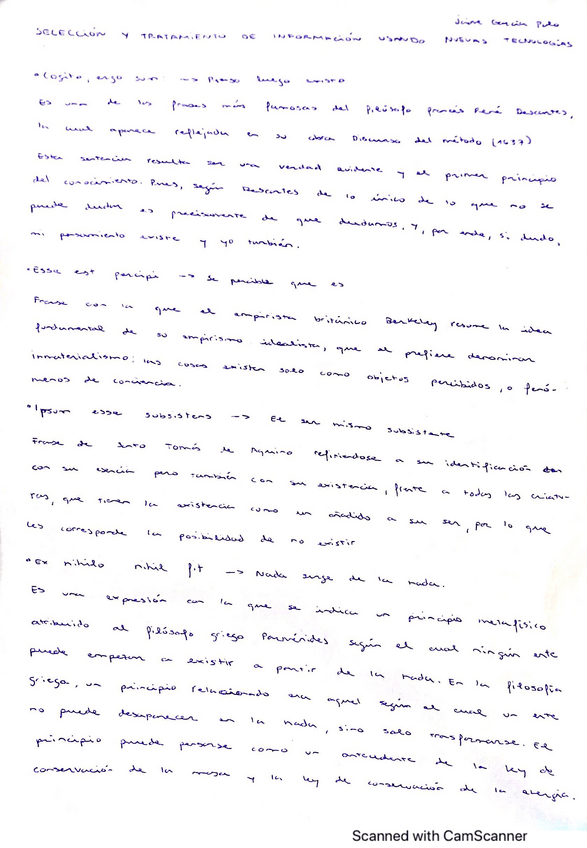 Jaime García Polo
SELECCIÓN Y TRATAMIENTO DE INFORMACIÓN USANDO NUEVAS TECNOLOGÍAS
• Cogito, ergo sum -> Pienso luego existo
Es una de las frases más famosas del filósofo francés René Descartes,
la cual aparece reflejada en su obra Discurso del método (1637)
Esta sentencia resulta ser una verdad evidente y el primer principio
del conocimiento. Pues, según Descartes de lo único de lo que no se
puede dudar es precisamente de que dudamos. Y, por ende, si dudo,
mi pensamiento existe y yo también.
• Esse est percipi -> se percibe que es
Frase con la que el empirista británico Berkeley resume la idea
fundamental de su empirismo idealista, que el prefiere denominar
inmaterialismo: las cosas existen solo como objetos percibidos, o fenó-
menos de conciencia.
• Ipsum esse subsistens -> El ser mismo subsistente
Frase de Santo Tomás de Aquino refiriendose a su identificación
con su esencia pero también con su existencia, frente a todas las criatu-
ras, que tienen la existencia como un añadido a su ser, por lo que
les corresponde la posibilidad de no existir
• Ex nihilo nihil fit -> Nada surge de la nada.
Es una expresión con la que se indica un principio metafísico
atribuido al filósofo griego Parménides según el cual ningún ente
puede empezar a existir a partir de la nada. En la filosofía
griega, un principio relacionado era aquel según el cual un ente
no puede desaparecer en la nada, sino solo transformarse. El
principio puede pensarse como un antecedente de la ley de
conservación de la masa y la ley de conservación de la energía.
Scanned with CamScanner